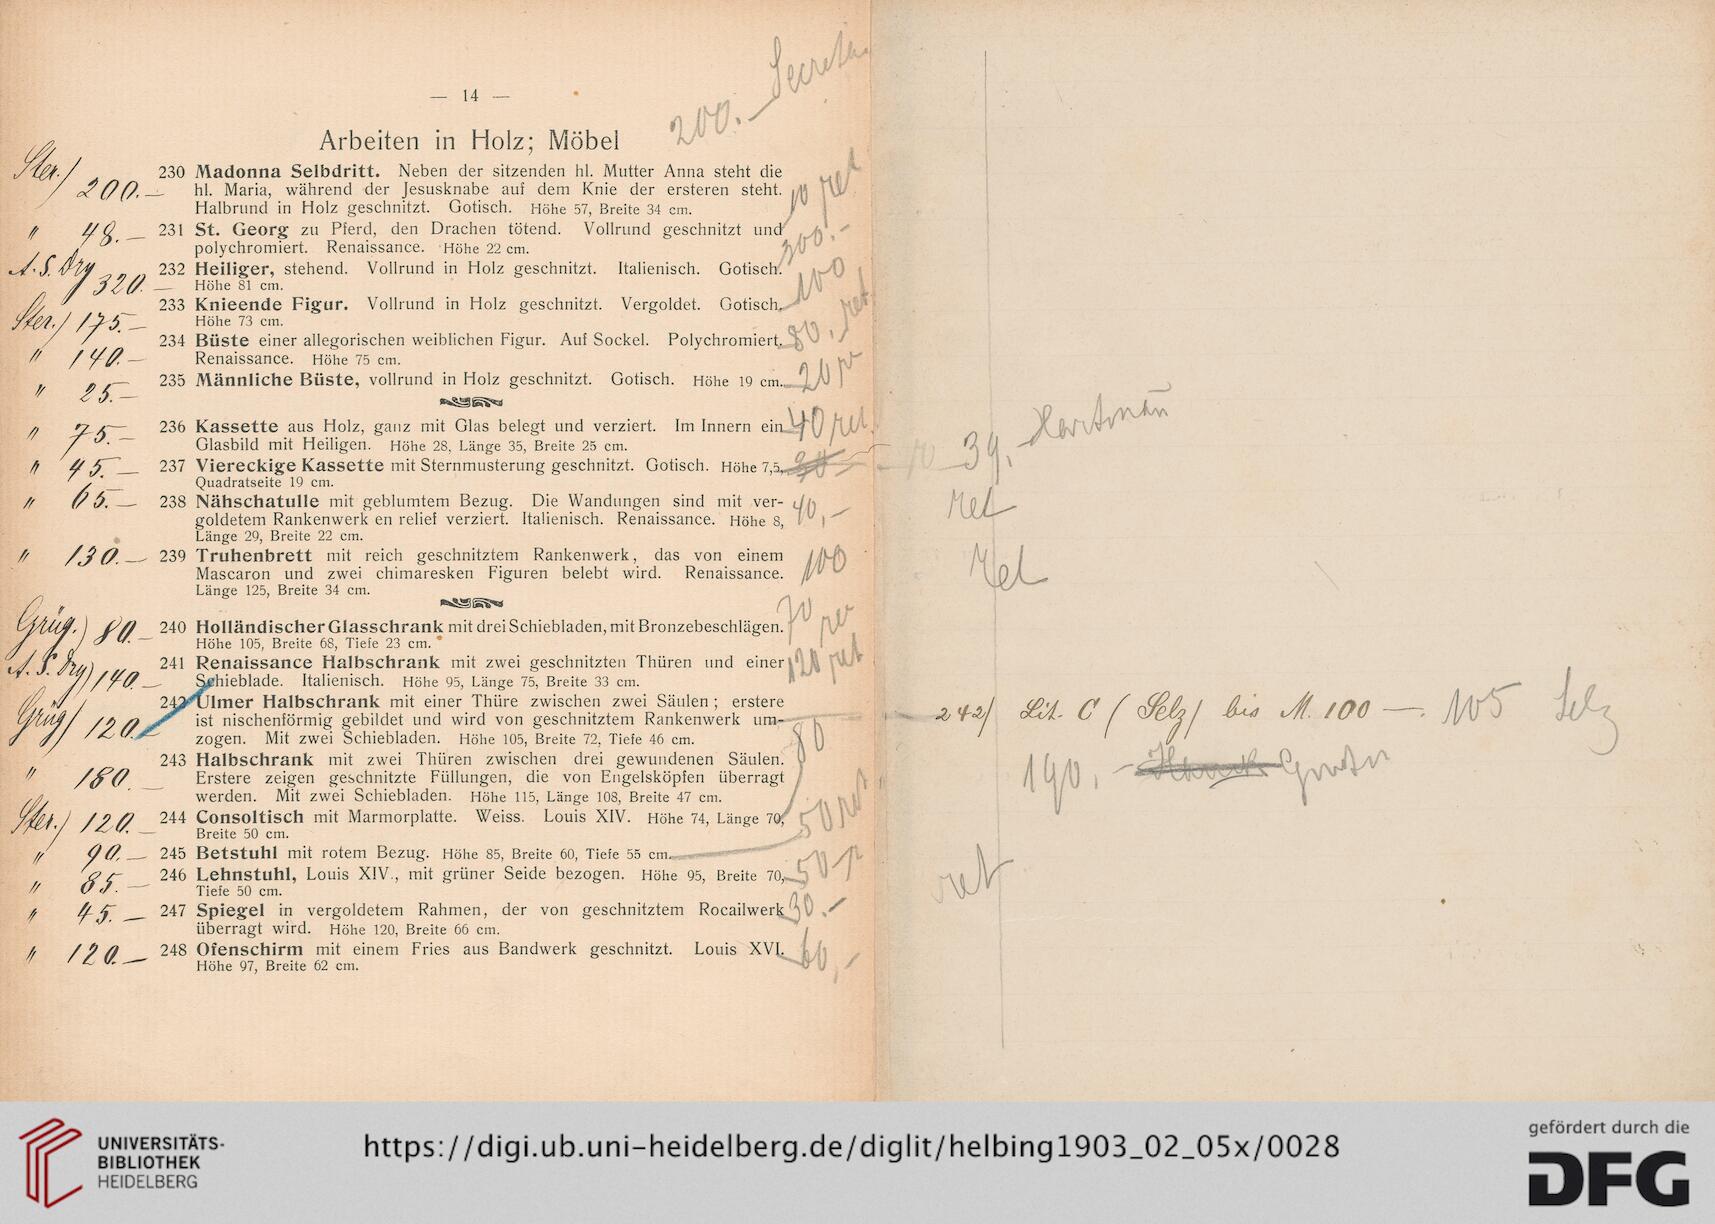 — 14 —
200.—
Arbeiten in Holz; Möbel
Ster.) 200.— 230 Madonna Selbdritt. Neben der sitzenden hl. Mutter Anna steht die
hl. Maria, während der Jesusknabe auf dem Knie der ersteren steht.
Halbrund in Holz geschnitzt. Gotisch. Höhe 57, Breite 34 cm.
" 48.— 231 St. Georg zu Pferd, den Drachen tötend. Vollrund geschnitzt und
polychromiert. Renaissance. Höhe 22 cm.
A. S. Dry 320.— 232 Heiliger, stehend. Vollrund in Holz geschnitzt. Italienisch. Gotisch.
Höhe 81 cm.
Ster.) 175.— 233 Knieende Figur. Vollrund in Holz geschnitzt. Vergoldet. Gotisch. 100
Höhe 73 cm.
" 140.— 234 Büste einer allegorischen weiblichen Figur. Auf Sockel. Polychromiert. 80. ret
Renaissance. Höhe 75 cm.
" 25.— 235 Männliche Büste, vollrund in Holz geschnitzt. Gotisch. Höhe 19 cm. 20
" 75.— 236 Kassette aus Holz, ganz mit Glas belegt und verziert. Im Innern ein 40 ret
Glasbild mit Heiligen. Höhe 28, Länge 35, Breite 25 cm.
" 45.— 237 Viereckige Kassette mit Sternmusterung geschnitzt. Gotisch. Höhe 7,5,
Quadratseite 19 cm.
" 65.— 238 Nähschatulle mit geblumtem Bezug. Die Wandungen sind mit ver- 40,—
goldetem Rankenwerk en relief verziert. Italienisch. Renaissance. Höhe 8,
Länge 29, Breite 22 cm.
" 130.— 239 Truhenbrett mit reich geschnitztem Rankenwerk, das von einem 100
Mascaron und zwei chimaresken Figuren belebt wird. Renaissance.
Länge 125, Breite 34 cm.
Grüg.) 80.— 240 Holländischer Glasschrank mit drei Schiebladen, mit Bronzebeschlägen. 70
Höhe 105, Breite 68, Tiefe 23 cm.
A. S. Dry) 140.— 241 Renaissance Halbschrank mit zwei geschnitzten Thüren und einer 120 ret
Schieblade. Italienisch. Höhe 95, Länge 75, Breite 33 cm.
Grüg) 120.— 242 Ulmer Halbschrank mit einer Thüre zwischen zwei Säulen; erstere
ist nischenförmig gebildet und wird von geschnitztem Rankenwerk um-
zogen. Mit zwei Schiebladen. Höhe 105, Breite 72, Tiefe 46 cm.
" 180.— 243 Halbschrank mit zwei Thüren zwischen drei gewundenen Säulen. 80
Erstere zeigen geschnitzte Füllungen, die von Engelsköpfen überragt
werden. Mit zwei Schiebladen. Höhe 115, Länge 108, Breite 47 cm.
Ster.) 120.— 244 Consoltisch mit Marmorplatte. Weiss. Louis XIV. Höhe 74, Länge 70,
Breite 50 cm.
" 90.— 245 Betstuhl mit rotem Bezug. Höhe 85, Breite 60, Tiefe 55 cm. 50 ret
" 85.— 246 Lehnstuhl, Louis XIV., mit grüner Seide bezogen. Höhe 95, Breite 70, 50
Tiefe 50 cm.
" 45.— 247 Spiegel in vergoldetem Rahmen, der von geschnitztem Rocailwerk 30.—
überragt wird. Höhe 120, Breite 66 cm.
" 120.— 248 Ofenschirm mit einem Fries aus Bandwerk geschnitzt. Louis XVI. 60,—
Höhe 97, Breite 62 cm.
39.
ret
ret
242) Lit. C (Selz) bis M. 100 —. 105 Selz
190.—
ret
UNIVERSITÄTS-
BIBLIOTHEK
HEIDELBERG
https://digi.ub.uni-heidelberg.de/diglit/helbing1903_02_05x/0028
gefördert durch die
DFG